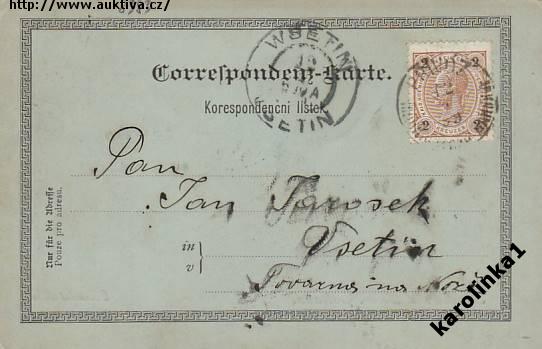 http://www.auktiva.cz/
WSETIN
VSETIN
Correspondenz-Karte.
Korespondenční lístek
2 2
KREUZER
2 2
Pan
Jan Jarosek
in
v
Vsetín
Tovarna na
Nur für die Adresse
Pouze pro adresu.
karolinka1